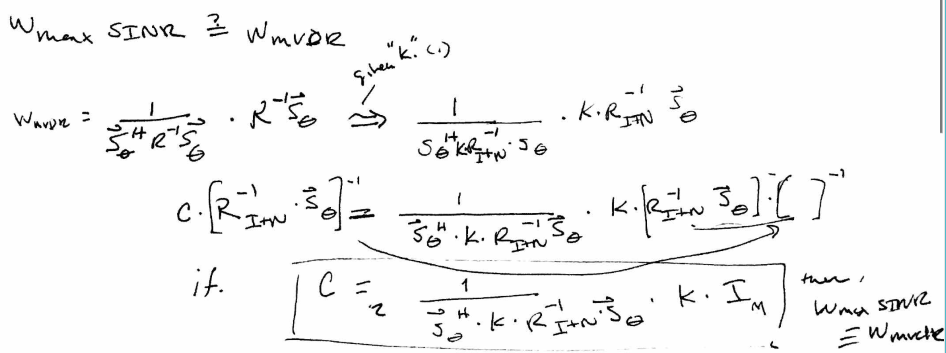 W_max SINR ≟ W_MVDR
given "K" (.)
W_MVDR = 1 / (s⃗_θ^H R^-1 s⃗_θ) · R^-1 s⃗_θ ⇒ 1 / (s_θ^H K R_I+N^-1 · s_θ) · K · R_I+N^-1 s⃗_θ
C · [R_I+N^-1 · s⃗_θ]^-1 = 1 / (s⃗_θ^H · K · R_I+N^-1 s⃗_θ) · K · [R_I+N^-1 s⃗_θ] · [ ]^-1
if. C = 1 / (s⃗_θ^H · K · R_I+N^-1 · s⃗_θ) · K · I_M then,
W_max SINR
≡ W_MVDR